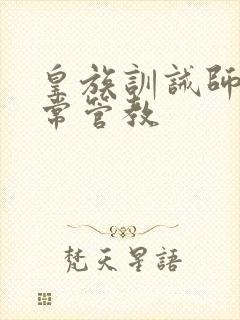 皇族訓誡師
常管教
梵天星語